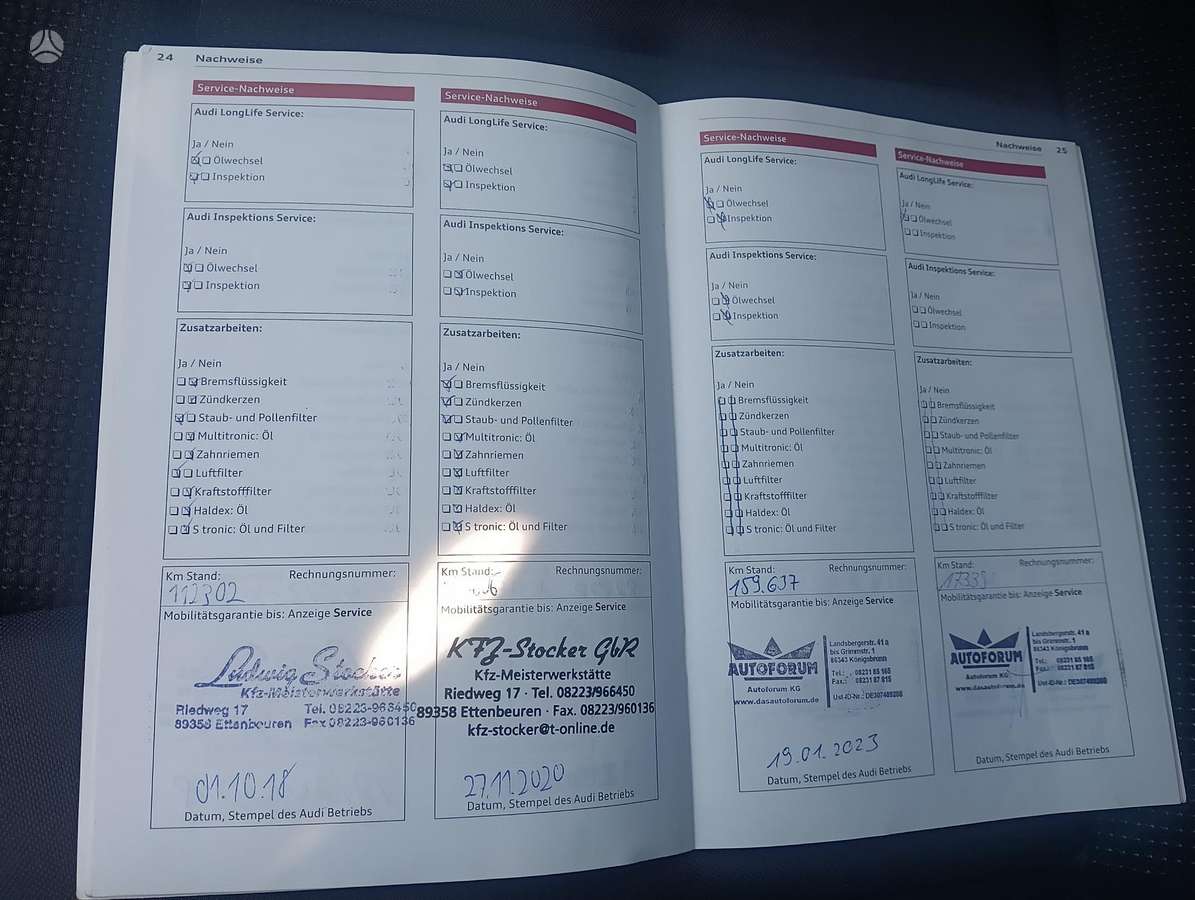 24 Nachweise
Service-Nachweise
Audi LongLife Service:
Ja / Nein
Ölwechsel
Inspektion
Audi Inspektions Service:
Ja / Nein
Ölwechsel
Inspektion
Zusatzarbeiten:
Ja / Nein
Bremsflüssigkeit
Zündkerzen
Staub- und Pollenfilter
Multitronic: Öl
Zahnriemen
Luftfilter
Kraftstofffilter
Haldex: Öl
S tronic: Öl und Filter
Km Stand: Rechnungsnummer:
112302
Mobilitätsgarantie bis: Anzeige Service
Ludwig Stocker
Kfz-Meisterwerkstätte
Riedweg 17 Tel. 08223-966450
89358 Ettenbeuren Fax 08223-960136
01.10.18
Datum, Stempel des Audi Betriebs
Service-Nachweise
Audi LongLife Service:
Ja / Nein
Ölwechsel
Inspektion
Audi Inspektions Service:
Ja / Nein
Ölwechsel
Inspektion
Zusatzarbeiten:
Ja / Nein
Bremsflüssigkeit
Zündkerzen
Staub- und Pollenfilter
Multitronic: Öl
Zahnriemen
Luftfilter
Kraftstofffilter
Haldex: Öl
S tronic: Öl und Filter
Km Stand: Rechnungsnummer:
Mobilitätsgarantie bis: Anzeige Service
KFZ-Stocker GbR
Kfz-Meisterwerkstätte
Riedweg 17 · Tel. 08223/966450
89358 Ettenbeuren · Fax. 08223/960136
kfz-stocker@t-online.de
27.11.2020
Datum, Stempel des Audi Betriebs
Nachweise 25
Service-Nachweise
Audi LongLife Service:
Ja / Nein
Ölwechsel
Inspektion
Audi Inspektions Service:
Ja / Nein
Ölwechsel
Inspektion
Zusatzarbeiten:
Ja / Nein
Bremsflüssigkeit
Zündkerzen
Staub- und Pollenfilter
Multitronic: Öl
Zahnriemen
Luftfilter
Kraftstofffilter
Haldex: Öl
S tronic: Öl und Filter
Km Stand: Rechnungsnummer:
159.637
Mobilitätsgarantie bis: Anzeige Service
AUTOFORUM
Autoforum KG
www.dasautoforum.de
Landsbergerstr. 41 a
bis Grimmstr. 1
86343 Königsbrunn
Tel.: 08231 85 165
Fax.: 08231 87 815
Ust-ID-Nr.: DE307489288
19.01.2023
Datum, Stempel des Audi Betriebs
Service-Nachweise
Audi LongLife Service:
Ja / Nein
Ölwechsel
Inspektion
Audi Inspektions Service:
Ja / Nein
Ölwechsel
Inspektion
Zusatzarbeiten:
Ja / Nein
Bremsflüssigkeit
Zündkerzen
Staub- und Pollenfilter
Multitronic: Öl
Zahnriemen
Luftfilter
Kraftstofffilter
Haldex: Öl
S tronic: Öl und Filter
Km Stand: Rechnungsnummer:
Mobilitätsgarantie bis: Anzeige Service
AUTOFORUM
Autoforum KG
www.dasautoforum.de
Landsbergerstr. 41 a
bis Grimmstr. 1
86343 Königsbrunn
Tel.: 08231 85 165
Fax.: 08231 87 815
Ust-ID-Nr.: DE307489288
Datum, Stempel des Audi Betriebs